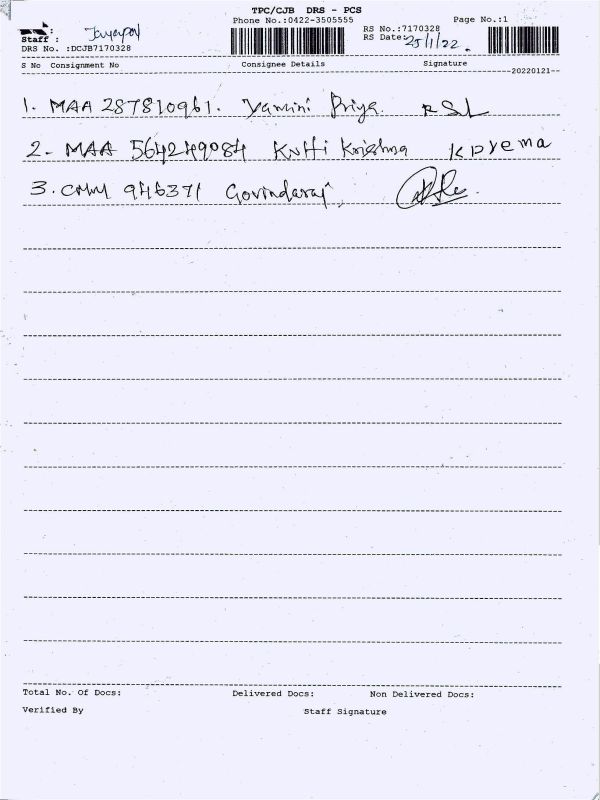 TPC/CJB DRS - PCS
Phone No.:0422-3505555 Page No.:1
Staff : RS No.:7170328
DRS No. :DCJB7170328 RS Date: 25/1/22.
S No Consignment No Consignee Details Signature
--20220121--
1. MAA 287810961. Yamini Priya. RSL
2- MAA 564249084 Kutti Krishna K Prema
3. CMM 946371 Govindaraj
Total No. Of Docs: Delivered Docs: Non Delivered Docs:
Verified By Staff Signature